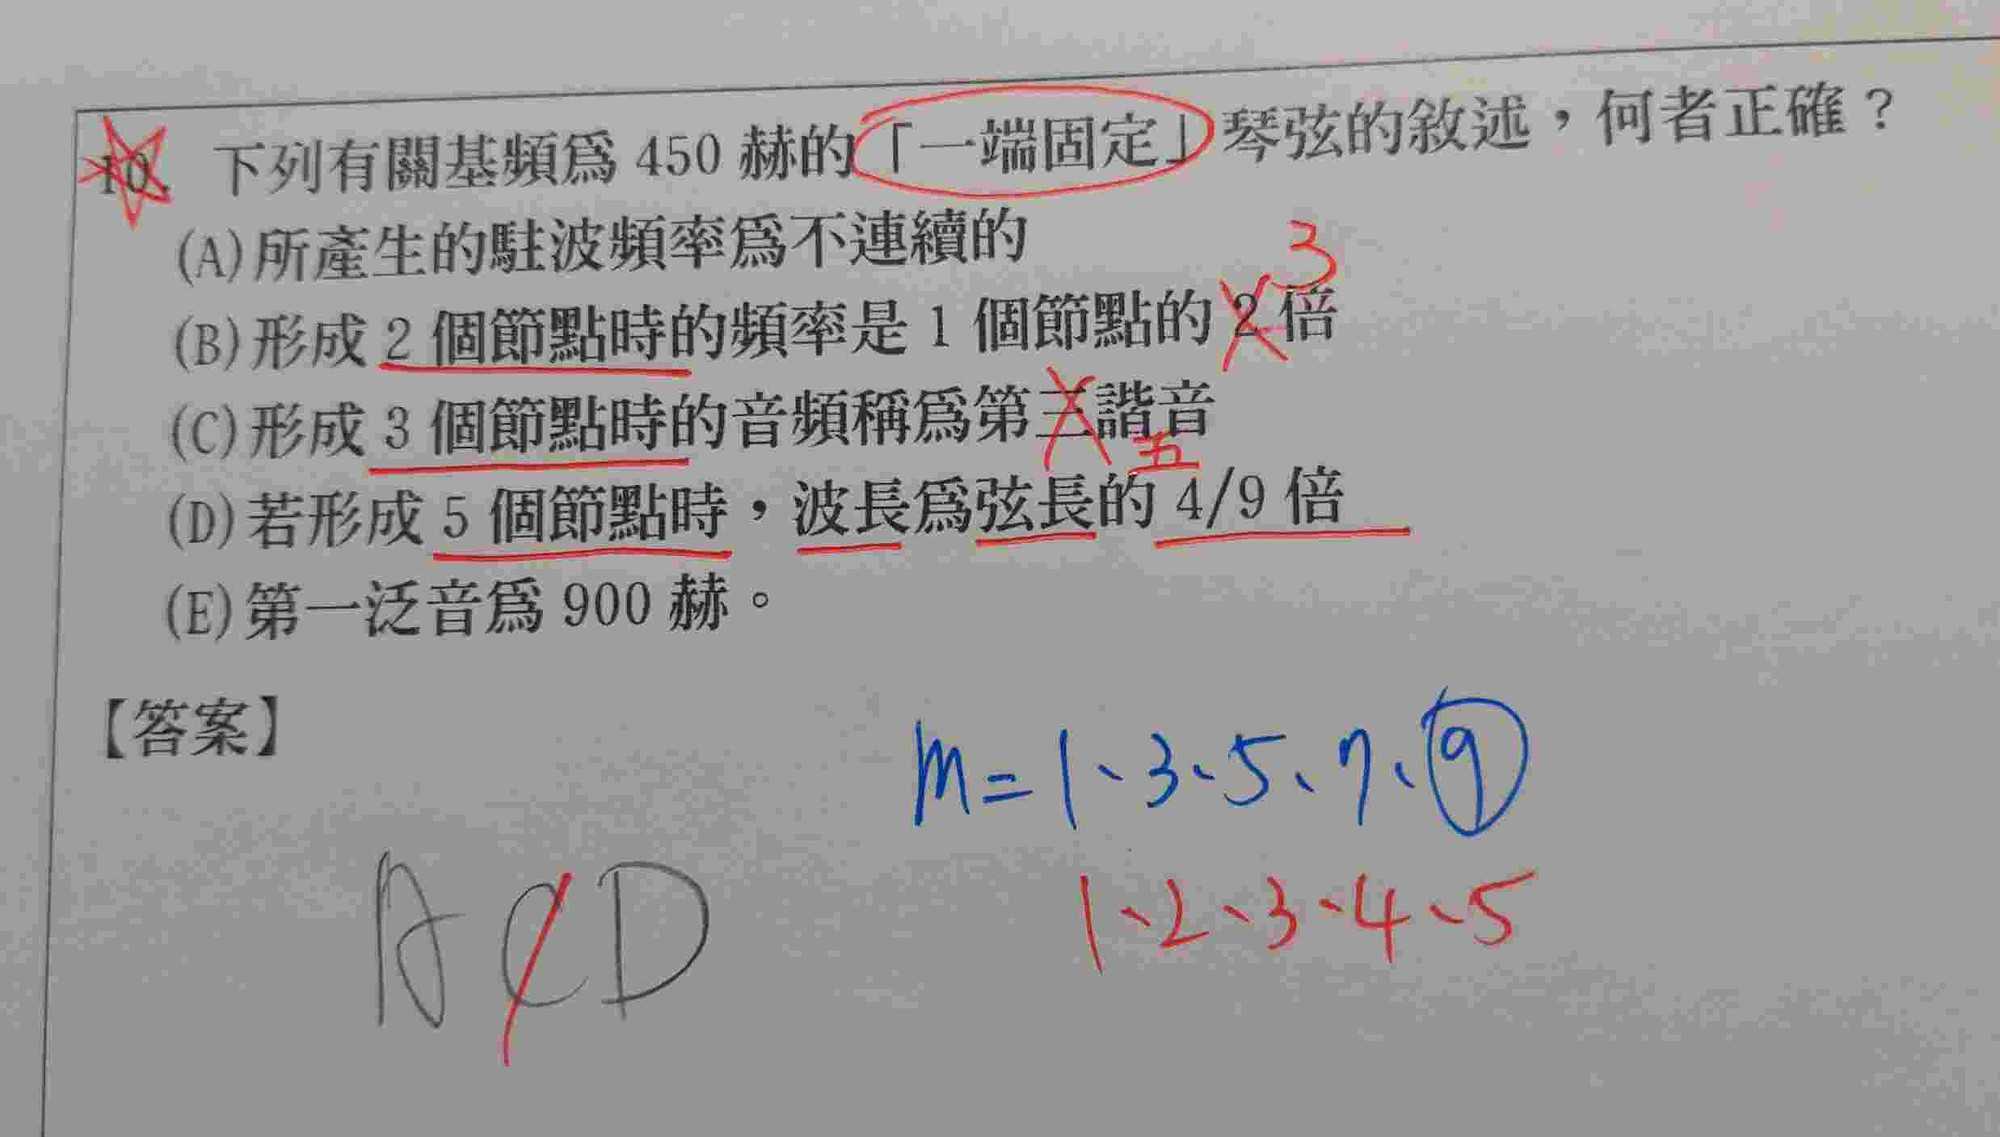 10. 下列有關基頻為 450 赫的「一端固定」琴弦的敘述，何者正確？
(A)所產生的駐波頻率為不連續的
3
(B)形成 2 個節點時的頻率是 1 個節點的 2 倍
(C)形成 3 個節點時的音頻稱為第三諧音
五
(D)若形成 5 個節點時，波長為弦長的 4/9 倍
(E)第一泛音為 900 赫。
【答案】
m=1、3、5、7、9
A C D
1、2、3、4、5